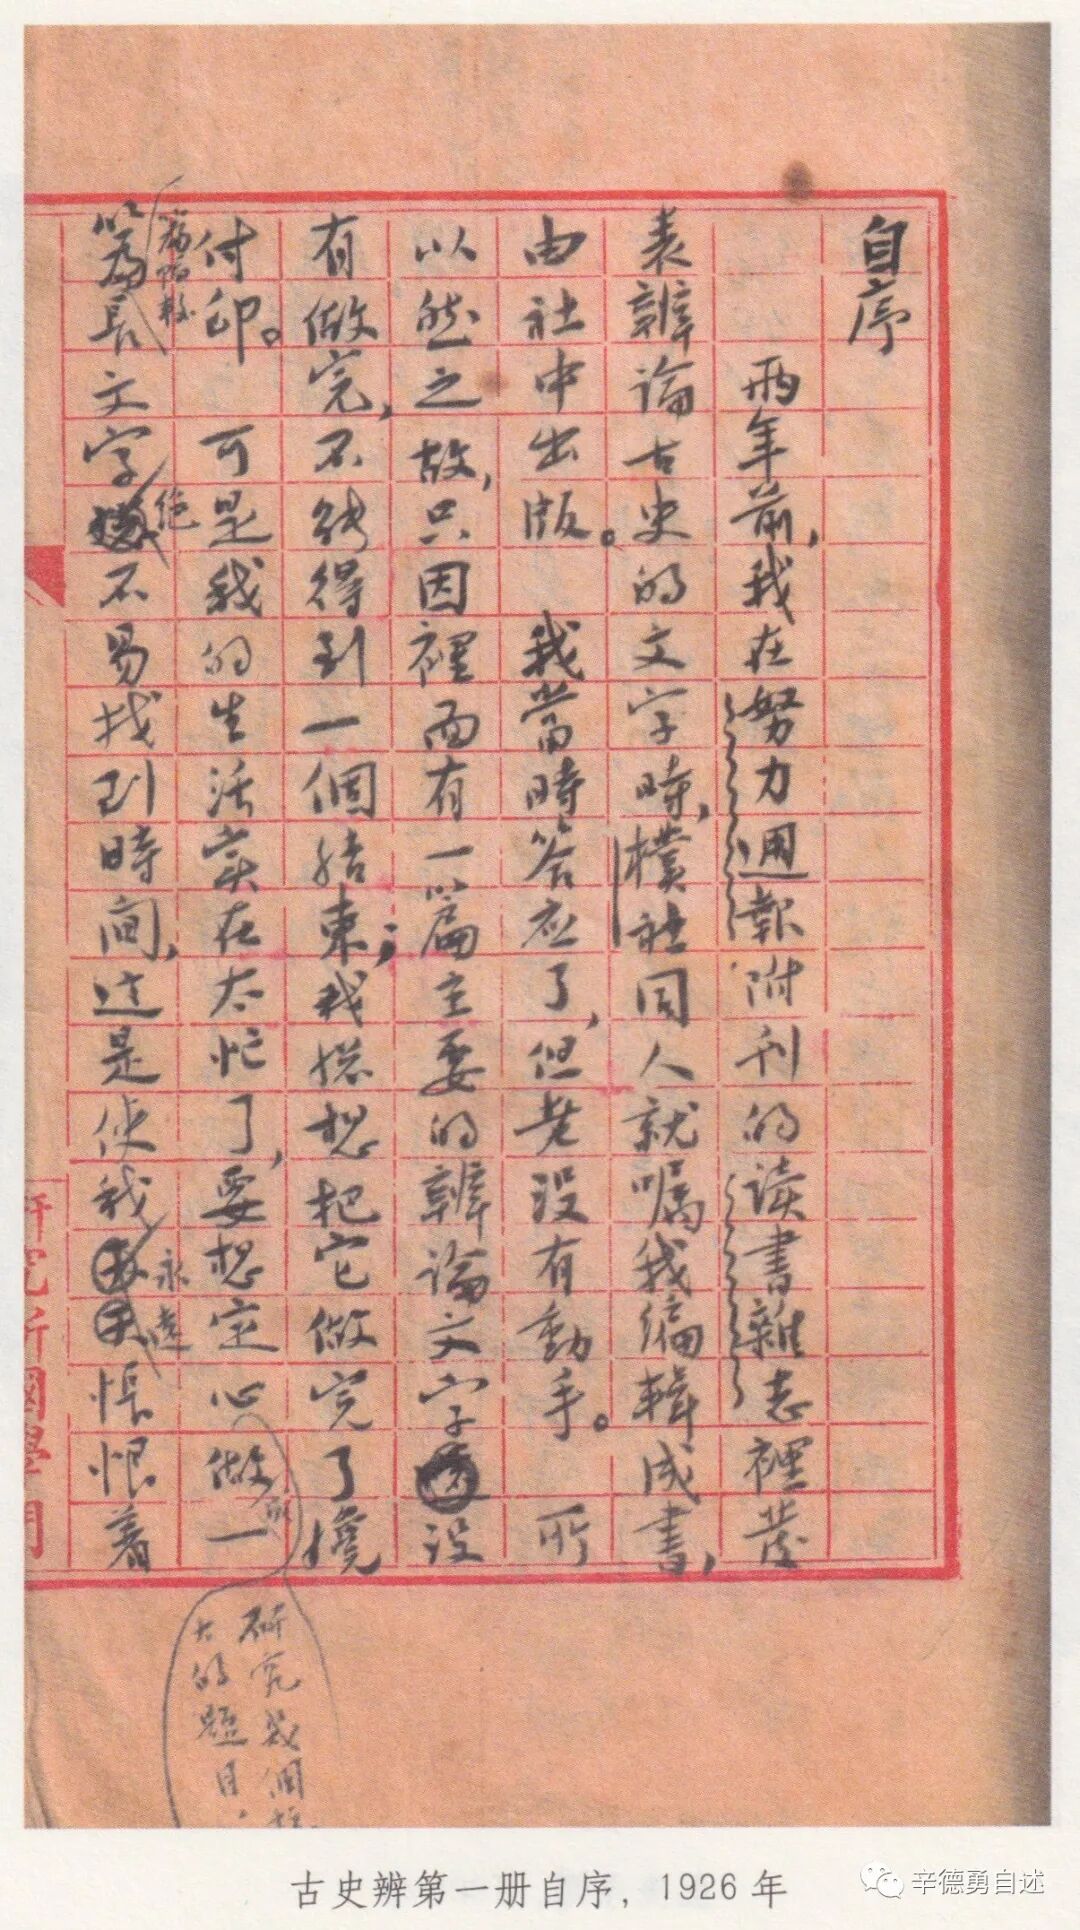 自序
兩年前，我在努力週報附刊的读書雜志裡發
表辨論古史的文字時，樸社同人就嘱我编輯成書，
由社中出版。我當時答应了，但老沒有動手。所
以然之故，只因裡面有一篇主要的辨論文字没
有做完，不能得到一個结束；我总想把它做完了纔
付印。可是我的生活实在太忙了，要想定心做一
篇長文字绝不易找到時间，这是使我永遠悵恨着
篇幅較
研究幾個
大的題目，
研究所國學門
古史辨第一册自序，1926 年
辛德勇自述